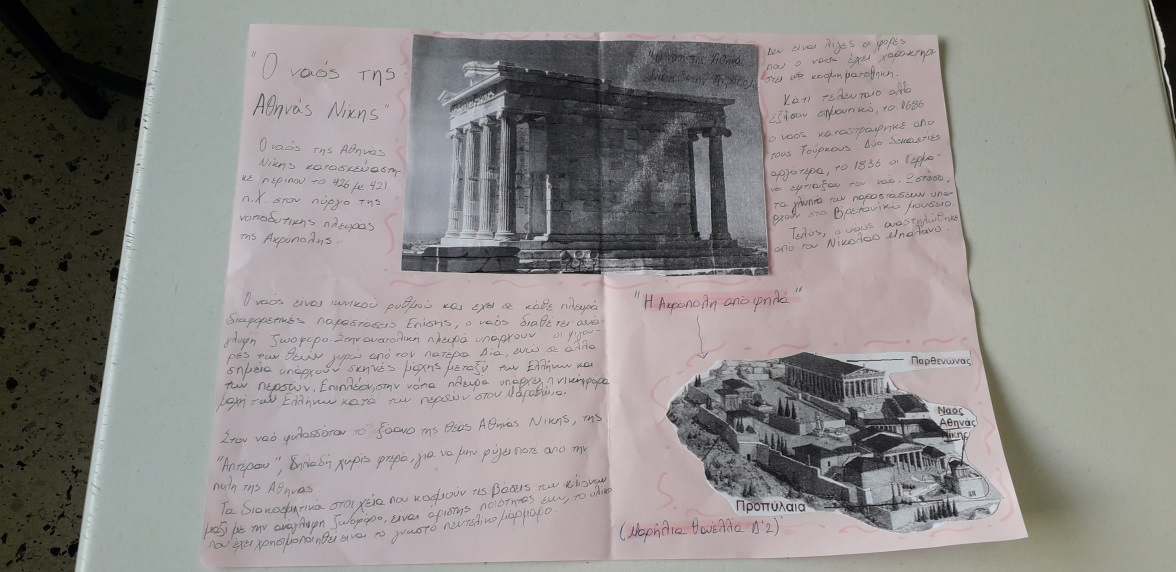 "Ο ναός της
Αθηνάς Νίκης"
Ο ναός της Αθηνάς
Νίκης κατασκευάστη-
κε περίπου το 426 με 421
π.Χ στον πύργο της
νοτιοδυτικής πλευράς
της Ακρόπολης.
Δεν είναι λίγες οι φορές
που ο ναός έχει χαρακτηρι-
στεί ως κοσμηματοθήκη.
Κάτι τελευταίο αλλά
εξίσου σημαντικό, το 1686
ο ναός καταστράφηκε από
τους Τούρκους. Δύο δεκαετίες
αργότερα, το 1836 οι Γερμα-
νοί έφτιαξαν τον ναό. Ωστόσο,
τα γλυπτά των παραστάσεων υπά-
ρχουν στο Βρετανικό μουσείο.
Τέλος, ο ναός αναστηλώθηκε
από τον Νικόλαο Μπαλάνο.
Ο ναός είναι ιωνικού ρυθμού και έχει σε κάθε πλευρά
διαφορετικές παραστάσεις Επίσης, ο ναός διαθέτει ανά-
γλυφη ζωοφόρο. Στην ανατολική πλευρά υπάρχουν οι φιγού-
ρες των θεών γύρω από τον πατέρα Δία, ενώ σε άλλα
σημεία υπάρχουν σκηνές μάχης μεταξύ των Ελλήνων και
των περσών. Επιπλέον, στην νότια πλευρά υπάρχει η νικηφόρα
μάχη των Ελλήνων κατά των περσών στον Μαραθώνα.
Στον ναό φυλασσόταν το ξόανο της θεάς Αθηνάς Νίκης, της
"Απτέρου", δηλαδή χωρίς φτερά, για να μην φύγει ποτέ από την
πόλη της Αθήνας.
Τα διακοσμητικά στοιχεία που κοσμούν τις βάσεις των κιόνων
μαζί με την ανάγλυφη ζωοφόρο, είναι άριστης ποιότητας ενώ, το υλικό
που έχει χρησιμοποιηθεί είναι το γνωστό πεντελικό μάρμαρο.
"Η Ακρόπολη από ψηλά"
Παρθενώνας
Ναός
Αθηνάς
Νίκης
Προπύλαια
(Μαρήλια Δ'2)